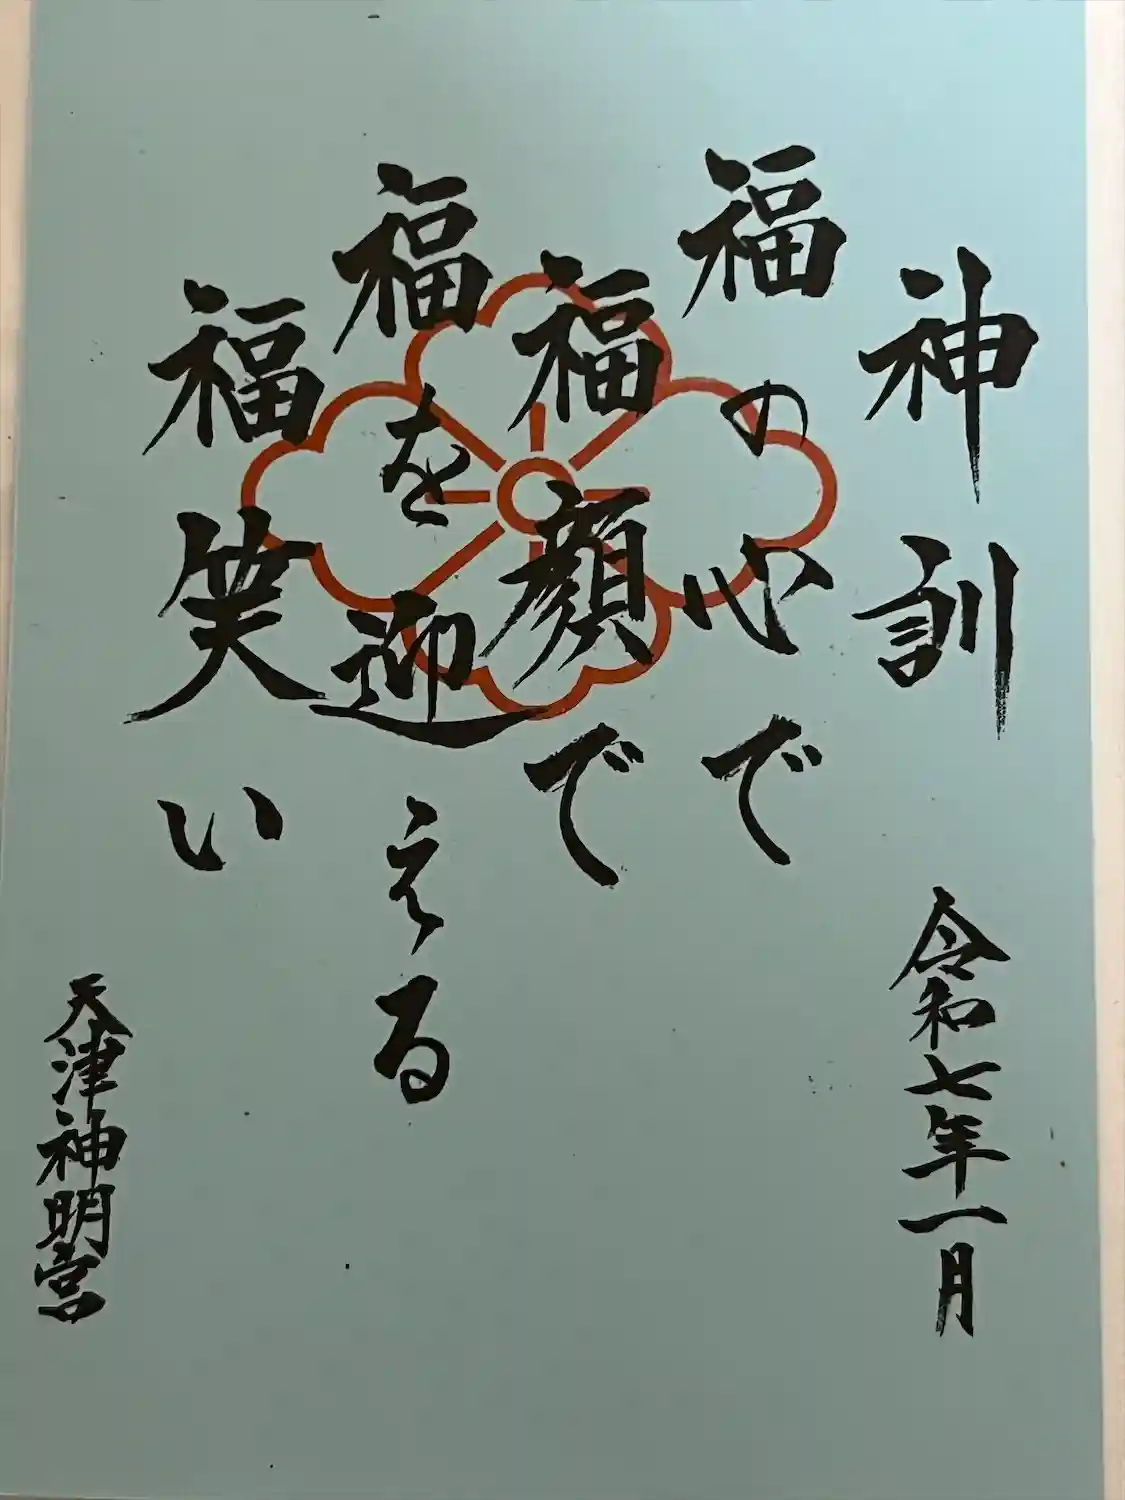 神訓 令和七年一月
福の心で
福顔で
福を迎える
福笑い
天津神明宮